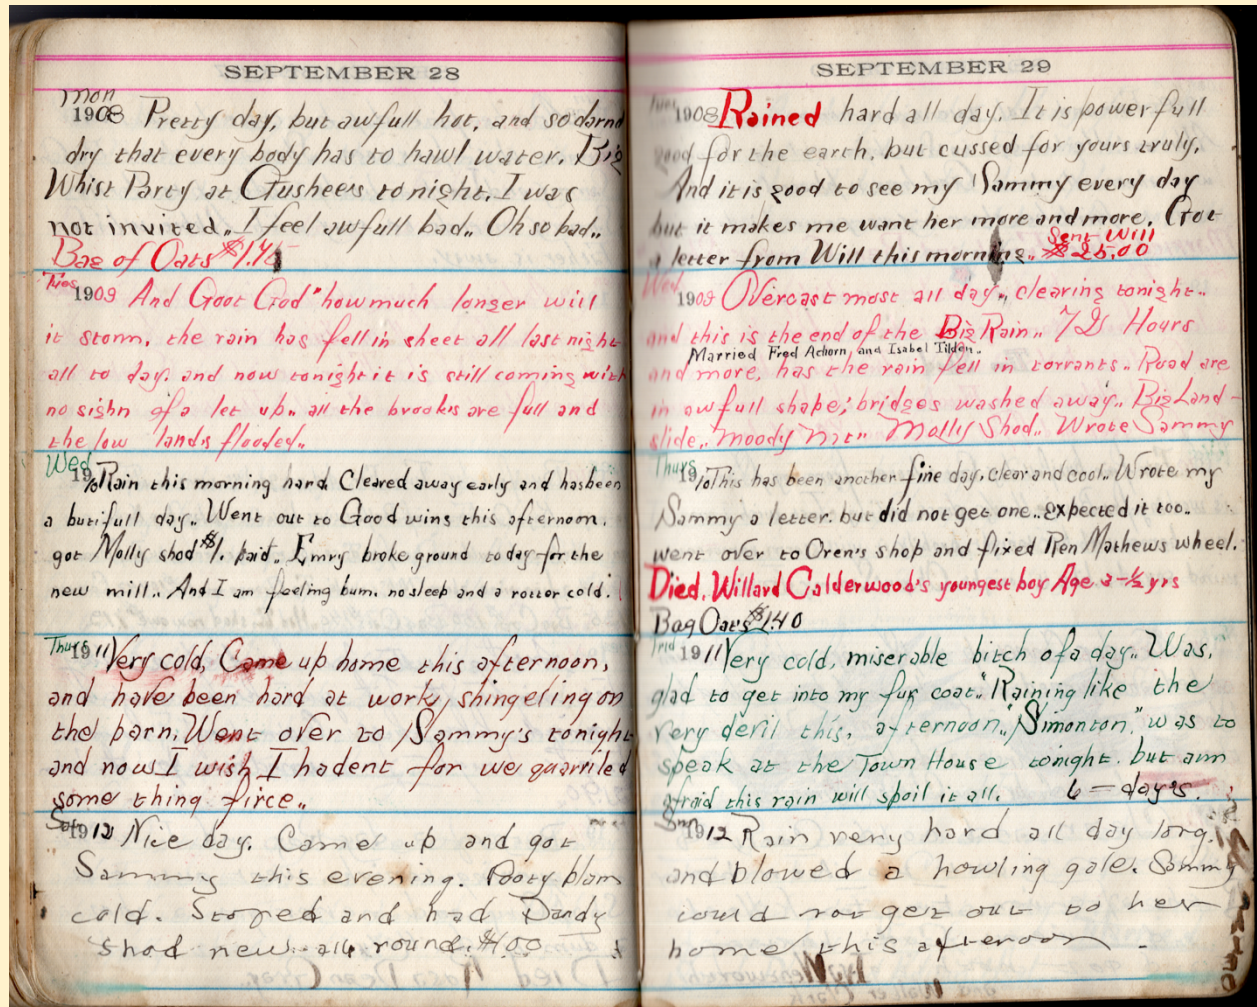 SEPTEMBER 28
Mon
1908 Pretty day, but awfull hot, and so darnd
dry that every body has to hawl water. Big
Whist Party at Gushee's tonight. I was
not invited.. I feel awfull bad.. Oh so bad..
Bag of Oats $1.45
Tues
1909 And Goot God" how much longer will
it storm, the rain has fell in sheet all last night
all to day. and now tonight it is still coming with
no sighn of a let up.. all the brooks are full and
the low lands flooded..
Wed
1910 Rain this morning hard Cleared away early and has been
a butifull day.. Went out to Goodwins this afternoon.
got Molly shod $1. paid.. Emry broke ground today for the
new mill.. And I am feeling bum. no sleep and a rottor cold.
Thurs
1911 Very cold, Came up home this afternoon,
and have been hard at work, shingeling on
the barn. Went over to Sammy's tonight
and now I wish I hadent for we quarriled
some thing firce..
Sat
1912 Nice day. Came up and got
Sammy this evening. Pooty blam
cold. Stoped and had Dandy
shod new all round.
SEPTEMBER 29
Tues
1908 Rained hard all day. It is powerfull
good for the earth, but cussed for yours truly.
And it is good to see my Sammy every day
but it makes me want her more and more. Got
a letter from Will this morning.. Sent Will
$25.00
Wed
1909 Overcast most all day.. clearing tonight..
and this is the end of the Big Rain.. 72 Hours
Married Fred Achorn, and Isabel Tilden..
and more, has the rain fell in torrants.. Road are
in awfull shape; bridges washed away.. Big Land-
slide.. Moody Mt" Molly Shod.. Wrote Sammy
Thurs
1910 This has been another fine day. clear and cool.. Wrote my
Sammy a letter. but did not get one.. expected it too..
went over to Oren's shop and fixed Ren Mathews wheel.
Died, Willard Calderwood's youngest boy Age 2-1/2 yrs
Bag Oats $1.40
Frid
1911 Very cold, miserable bitch of a day.. Was,
glad to get into my fur coat". Raining like the
very devil this, afternoon.. "Simonton," was to
speak at the Town House tonight. but am
afraid this rain will spoil it all. 6 — day's.
Sun
1912 Rain very hard all day long.
and blowed a howling gale. Sammy
could not get out to her
home this afternoon.